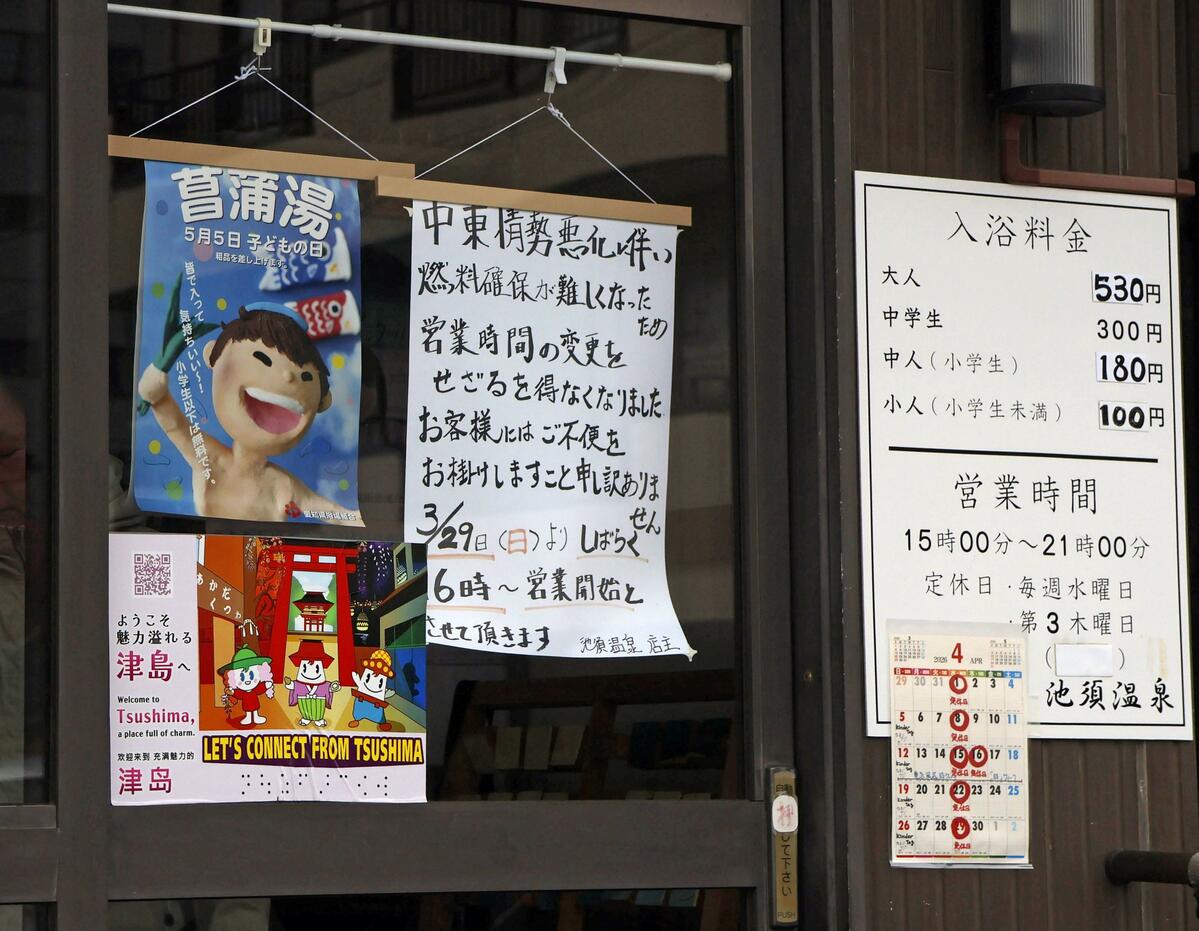 菖蒲湯
5月5日 子どもの日
粗品を差し上げます。
皆で入って
気持ちいい〜!
小学生以下は無料です。
愛知県浴場組合
中東情勢悪化に伴い
燃料確保が難しくなった
ため
営業時間の変更を
せざるを得なくなりました
お客様にはご不便を
お掛けしますこと申し訳ありま
せん
3/29日(日)より しばらく
16時〜営業開始と
させて頂きます
池須温泉 店主
ようこそ
魅力溢れる
津島へ
Welcome to
Tsushima,
a place full of charm.
欢迎来到 充满魅力的
津岛
あかだ
くつわ
LET'S CONNECT FROM TSUSHIMA
入浴料金
大人 530円
中学生 300円
中人(小学生) 180円
小人(小学生未満) 100円
営業時間
15時00分〜21時00分
定休日・毎週水曜日
・第3木曜日
( )
池須温泉
2026 4 APR
29 30 31 1 2 3 4
定休日
5 6 7 8 9 10 11
定休日
12 13 14 15 16 17 18
定休日 定休日
19 20 21 22 23 24 25
定休日
26 27 28 29 30 1 2
定休日
自動
押して下さい
PUSH